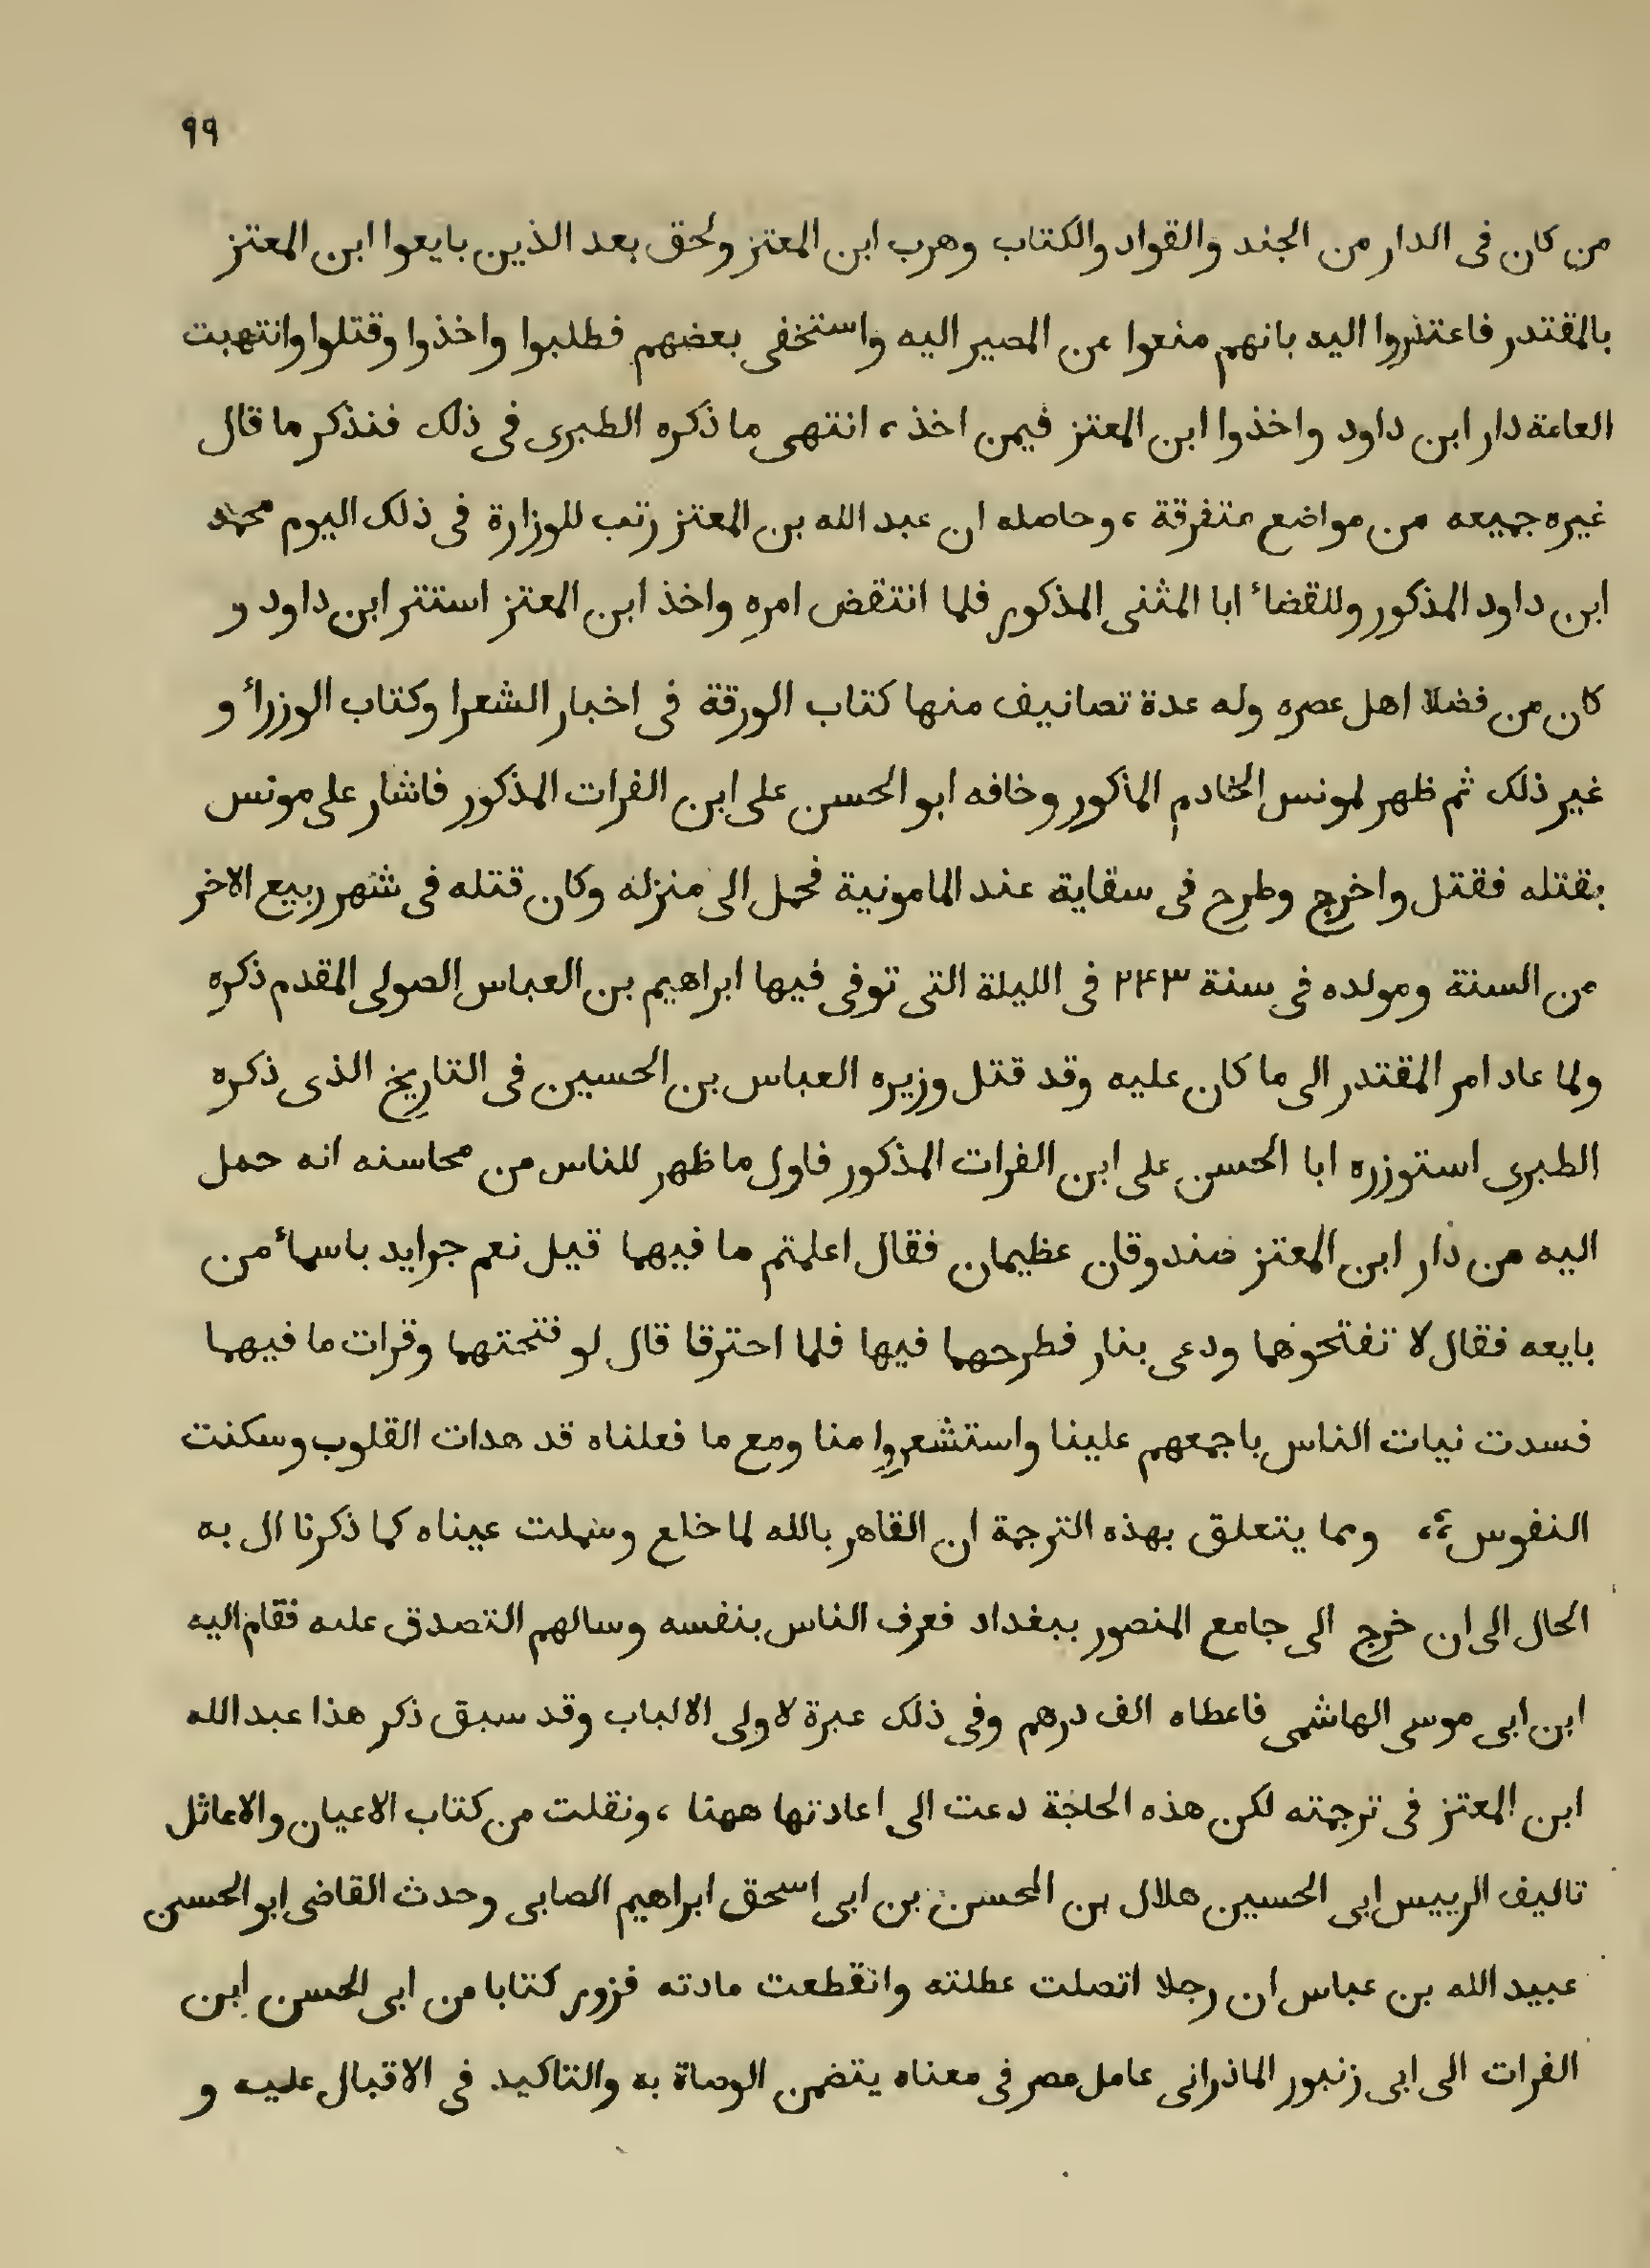 ٩٩
من كان فى الدار من الجند والقواد والكتاب وهرب ابن المعتز ولحق بعد الذين بايعوا ابن المعتز
بالمقتدر فاعتذروا اليه بانهم منعوا عن المصير اليه واستخفى بعضهم فطلبوا واخذوا وقتلوا وانتهبت
العامة دار ابن داود واخذوا ابن المعتز فيمن اخذ، انتهى ما ذكره الطبرى فى ذلك فنذكر ما قال
غيره جميعه من مواضع متفرقة، وحاصله ان عبد الله بن المعتز رتب للوزارة فى ذلك اليوم محمد
ابن داود المذكور وللقضاء ابا المثنى المذكور فلما انتقض امره واخذ ابن المعتز استتر ابن داود و
كان من فضلا اهل عصره وله عدة تصانيف منها كتاب الورقة فى اخبار الشعرا وكتاب الوزراء و
غير ذلك ثم ظهر لمونس الخادم المذكور وخافه ابو الحسن على ابن الفرات المذكور فاشار على مونس
بقتله فقتل واخرج وطرح فى سقاية عند المامونية فحمل الى منزله وكان قتله فى شهر ربيع الاخر
من السنة ومولده فى سنة ٢۴٣ فى الليلة التى توفى فيها ابراهيم بن العباس الصولى المقدم ذكره
ولما عاد امر المقتدر الى ما كان عليه وقد قتل وزيره العباس بن الحسين فى التاريخ الذى ذكره
الطبرى استوزره ابا الحسن على ابن الفرات المذكور فاول ما ظهر للناس من محاسنه انه حمل
اليه من دار ابن المعتز صندوقان عظيمان فقال اعلمتم ما فيهما قيل نعم جرايد باسماء من
بايعه فقال لا تفتحوهما ودعى بنار فطرحهما فيها فلما احترقا قال لو فتحتهما وقرات ما فيهما
فسدت نيات الناس باجمعهم علينا واستشعروا منا ومع ما فعلناه قد هدات القلوب وسكنت
النفوس، ومما يتعلق بهذه الترجمة ان القاهر بالله لما خلع وسملت عيناه كما ذكرنا ال به
الحال الى ان خرج الى جامع المنصور ببغداد فعرف الناس بنفسه وسالهم التصدق عليه فقام اليه
ابن ابى موسى الهاشمى فاعطاه الف درهم وفى ذلك عبرة لاولى الالباب وقد سبق ذكر هذا عبد الله
ابن المعتز فى ترجمته لكن هذه الحاجة دعت الى اعادتها ههنا، ونقلت من كتاب الاعيان والاماثل
تاليف الرييس ابى الحسين هلال بن المحسن بن ابى اسحق ابراهيم الصابى وحدث القاضى ابو الحسين
عبيد الله بن عباس ان رجلا اتصلت عطلته وانقطعت مادته فزور كتابا من ابى الحسن ابن
الفرات الى ابى زنبور الماذرانى عامل مصر فى معناه يتضمن الوصاة به والتاكيد فى الاقبال عليه و